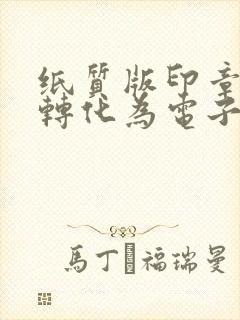 纸質版印章
轉化為電子
馬丁 福瑞曼